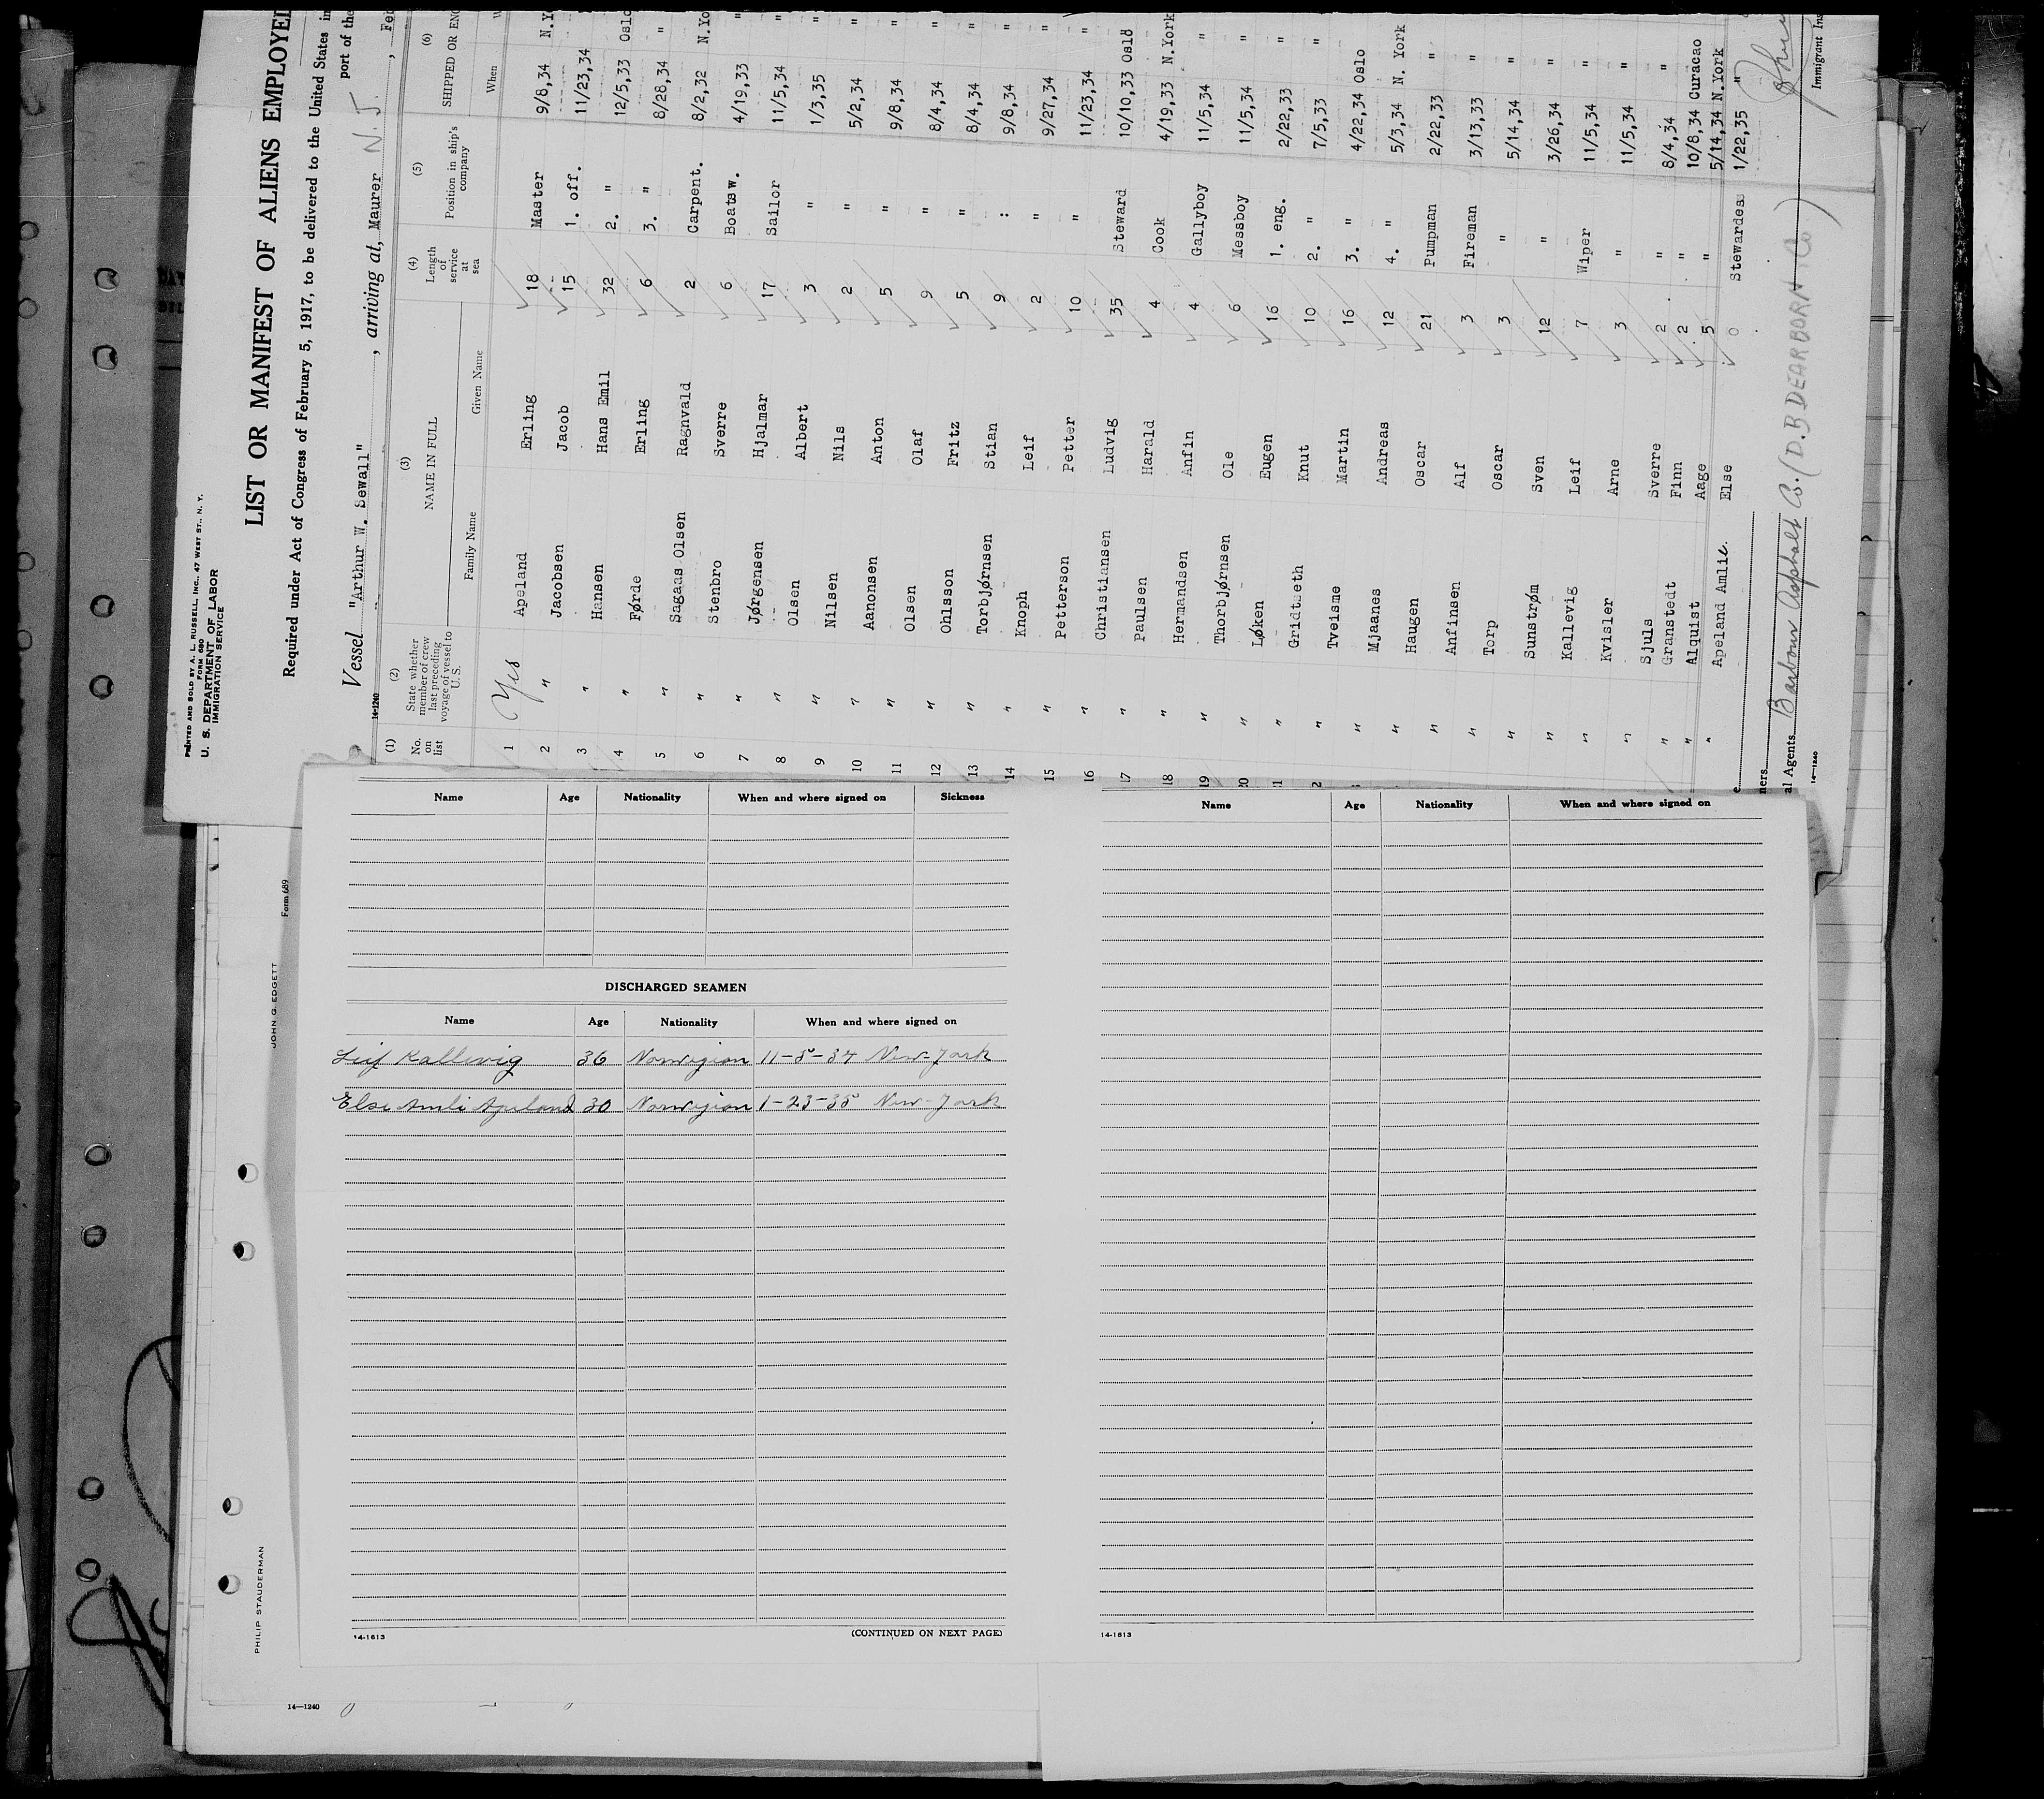 PRINTED AND SOLD BY A. L. RUSSELL, INC., 47 WEST ST., N. Y.
FORM 680
U. S. DEPARTMENT OF LABOR
IMMIGRATION SERVICE
LIST OR MANIFEST OF ALIENS EMPLOYED
Required under Act of Congress of February 5, 1917, to be delivered to the United States
port of the
Vessel "Arthur W. Sewall", arriving at, Maurer N. J.
14-1240
(1) (2) (3) (4) (5) (6)
No. on list State whether member of crew last preceding voyage of vessel to U.S. NAME IN FULL Length of service at sea Position in ship's company SHIPPED OR
Family Name Given Name When
1 Yes Apeland Erling 18 Master 9/8,34
2 " Jacobsen Jacob 15 1. off. 11/23,34
3 " Hansen Hans Emil 32 2. " 12/5,33 Oslo
4 " Førde Erling 6 3. " 8/28,34 "
5 " Sagaas Olsen Ragnvald 2 Carpent. 8/2,32 N.Yo
6 " Stenbro Sverre 6 Boatsw. 4/19,33 "
7 " Jørgensen Hjalmar 17 Sailor 11/5,34 "
8 " Olsen Albert 3 " 1/3,35 "
9 " Nilsen Nils 2 " 5/2,34 "
10 " Aanonsen Anton 5 " 9/8,34 "
11 " Olsen Olaf 9 " 8/4,34 "
12 " Ohlsson Fritz 5 " 8/4,34 "
13 " Torbjørnsen Stian 9 : 9/8,34 "
14 " Knoph Leif 2 " 9/27,34 "
15 " Petterson Petter 10 " 11/23,34 "
16 " Christiansen Ludvig 35 Steward 10/10,33 Oslo
17 " Paulsen Harald 4 Cook 4/19,33 N.York
18 " Hermandsen Anfin 4 Gallyboy 11/5,34 "
19 " Thorbjørnsen Ole 6 Messboy 11/5,34 "
20 " Løken Eugen 16 1. eng. 2/22,33 "
" Gridtseth Knut 10 2. " 7/5,33 "
" Tveisme Martin 16 3. " 4/22,34 Oslo
" Mjaanes Andreas 12 4. " 5/3,34 N. York
" Haugen Oscar 21 Pumpman 2/22,33 "
" Anfinsen Alf 3 Fireman 3/13,33 "
" Torp Oscar 3 " 5/14,34 "
" Sunstrøm Sven 12 " 3/26,34 "
" Kallevig Leif 7 Wiper 11/5,34 "
" Kvisler Arne 3 " 11/5,34 "
" Sjuls Sverre 2 " 8/4,34 "
" Granstedt Finn 2 " 10/8,34 Curacao
" Alquist Aage 5 " 5/14,34 N.York
" Apeland Amlie. Else 0 Stewardess 1/22,35 "
al Agents Barbour Asphalt Co. (D.B DEARBORN Co.)
Immigrant
14-1240
Name Age Nationality When and where signed on Sickness
DISCHARGED SEAMEN
Name Age Nationality When and where signed on
Leif Kallevig 36 Norwegian 11-5-34 New-York
Else Amli Apeland 30 Norwegian 1-23-35 New-York
14-1613 (CONTINUED ON NEXT PAGE)
Name Age Nationality When and where signed on
14-1613
Form 689
JOHN G. EDGETT
PHILIP STAUDERMAN
14-1240